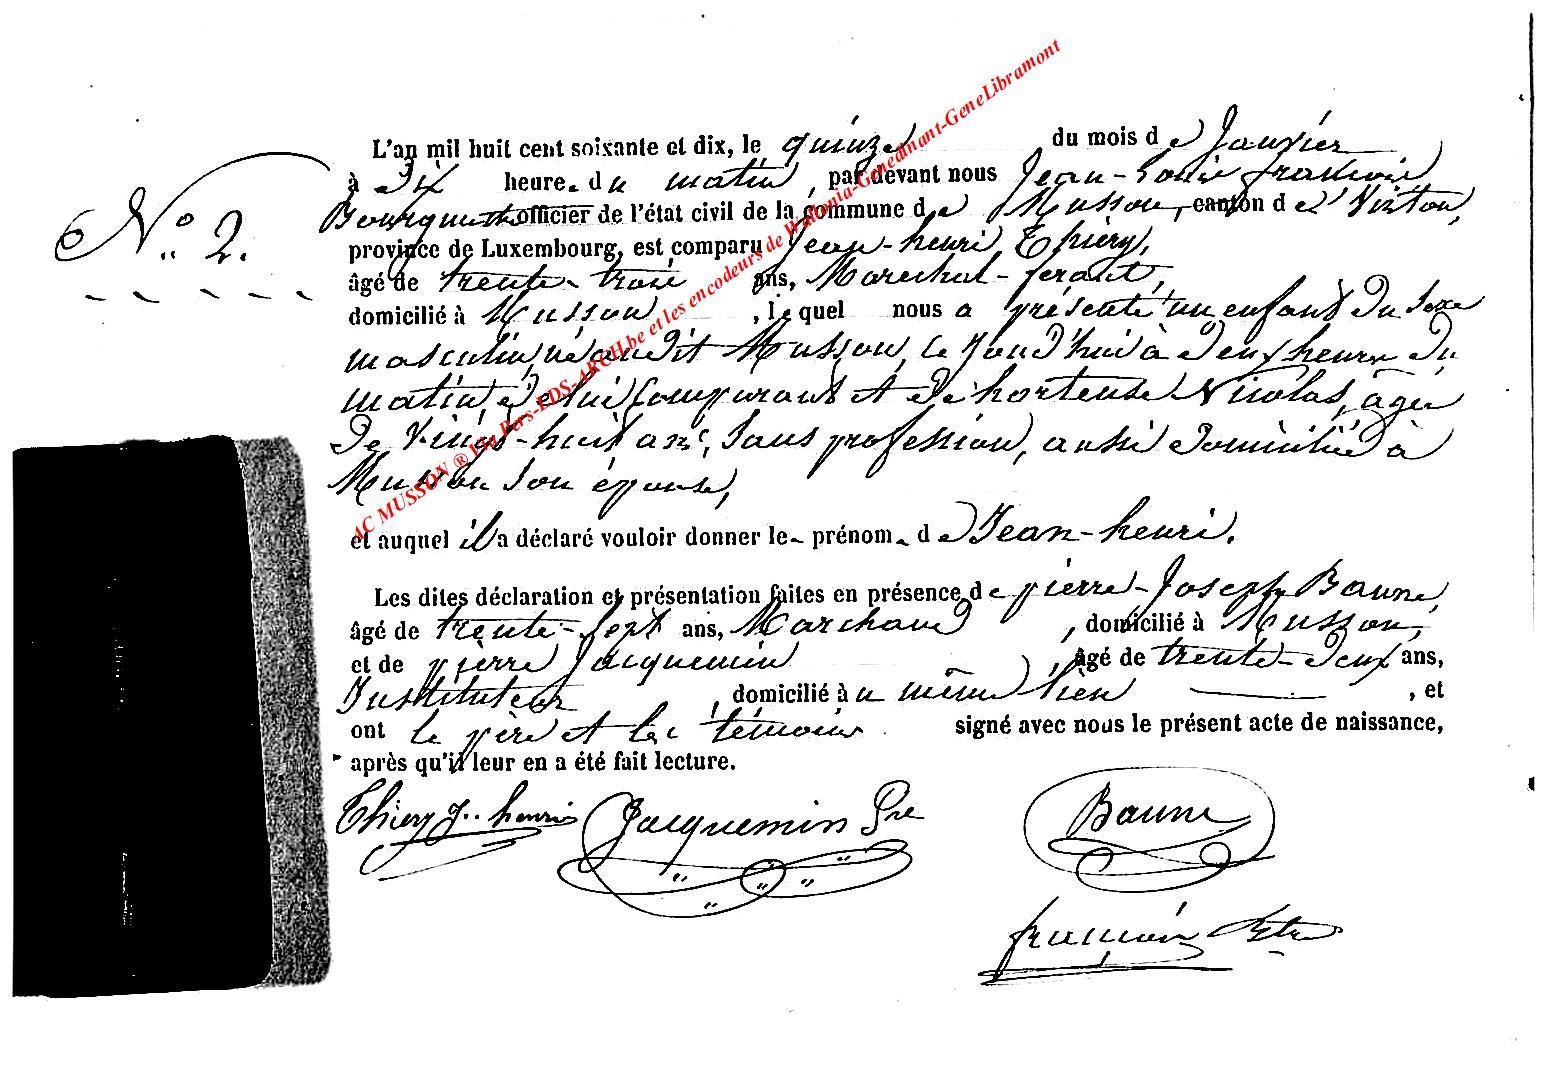 L'an mil huit cent soixante et dix, le quinze du mois de Janvier
à Dix heure. du matin, par devant nous Jean-Louis françois
N.º 2.
officier de l'état civil de la commune de Musson, canton de Virton,
province de Luxembourg, est comparu Jean-henri Thiéry,
âgé de trente-trois ans, Maréchal-ferant,
domicilié à Musson, lequel nous a présenté un enfant du sexe
masculin, né audit Musson, ce Jourd'hui à deux heures du
matin, de lui Comparant et de hortense Nicolas, âgée
de Vingt-huit ans, Sans profession, aussi domiciliée à
Musson Son épouse,
et auquel il a déclaré vouloir donner le prénom. de Jean-henri.
Les dites déclaration et présentation faites en présence de pierre-Joseph Baune,
âgé de trente-Sept ans, Marchand, domicilié à Musson,
et de pierre Jacquemin, âgé de trente-deux ans,
Instituteur, domicilié au même lieu, et
ont le père et les témoins signé avec nous le présent acte de naissance,
après qu'il leur en a été fait lecture.
Thiery J.. henri Jacquemin Pre Baune
françois
AC MUSSON ® Fra.Pers-EDS-ARCH.be et les encodeurs de Wallonia-Genedinant-GeneLibramont